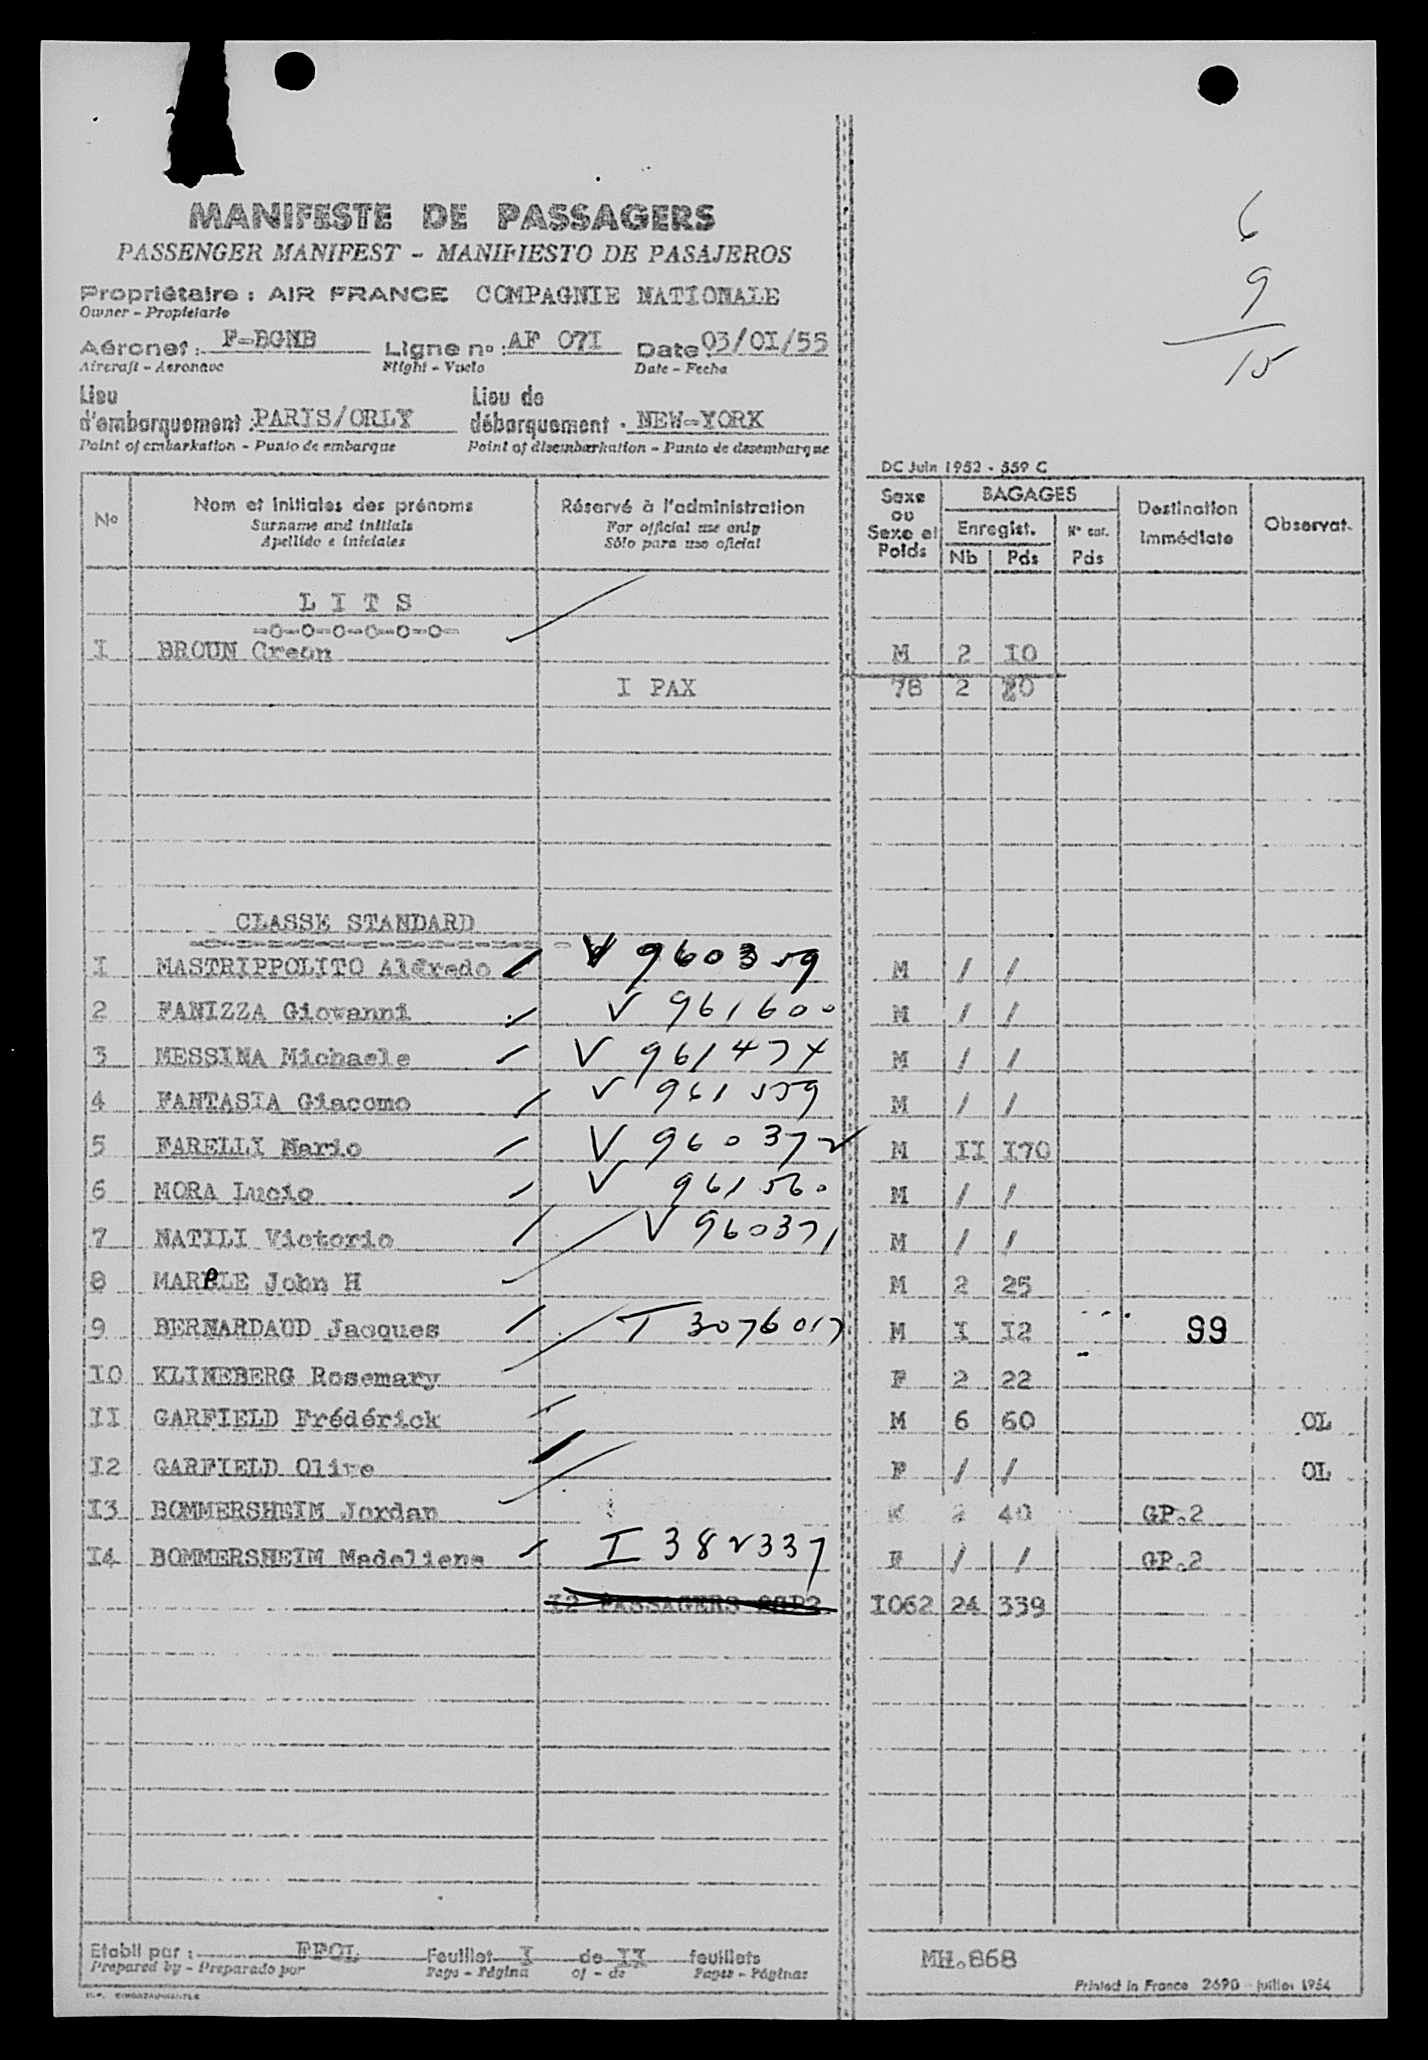 MANIFESTE DE PASSAGERS
PASSENGER MANIFEST - MANIFIESTO DE PASAJEROS
Propriétaire : AIR FRANCE COMPAGNIE NATIONALE
Owner - Propietario
Aéronef : F-BGNB Ligne no : AF 07I Date 03/0I/55
Aircraft - Aeronave Flight - Vuelo Date - Fecha
Lieu d'embarquement : PARIS/ORLY Lieu de débarquement . NEW-YORK
Point of embarkation - Punto de embarque Point of disembarkation - Punto de desembarque
6
9
15
DC Juin 1952 - 559 C
No Nom et initiales des prénoms Réservé à l'administration Sexe ou Sexe et Poids BAGAGES Destination Immédiate Observat.
Surname and initials For official use only Enregist. No enr.
Apellido e iniciales Sólo para uso oficial Nb Pds Pds
L I T S
=O=O=O=O=O=O=
I BROUN Creon M 2 IO
I PAX 78 2 20
CLASSE STANDARD
I MASTRIPPOLITO Alfredo V 960359 M / /
2 FANIZZA Giovanni V 961600 M / /
3 MESSINA Michaele V 961474 M / /
4 FANTASIA Giacomo V 961559 M / /
5 FARELLI Mario V 960372 M II I70
6 MORA Lucio V 961560 M / /
7 NATILI Victorio V 960371 M / /
8 MARBLE John H M 2 25
9 BERNARDAUD Jacques T 3076017 M I I2 99
IO KLINEBERG Rosemary F 2 22
II GARFIELD Frédérick M 6 60 OL
I2 GARFIELD Olive F / / OL
I3 BOMMERSHEIM Jordan 2 40 GP.2
I4 BOMMERSHEIM Madeliene I 382337 F / / GP.2
I2 PASSAGERS I062 24 339
Etabli par : Feuillet I de II feuillets
Prepared by - Preparado por Page - Página of - de Pages - Páginas
MH.868
Printed in France 2690 - juillet 1954